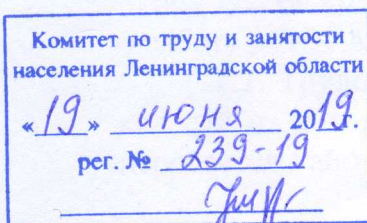 Комитет по труду и занятости
населения Ленинградской области
«19» июня 2019г.
рег. № 239-19